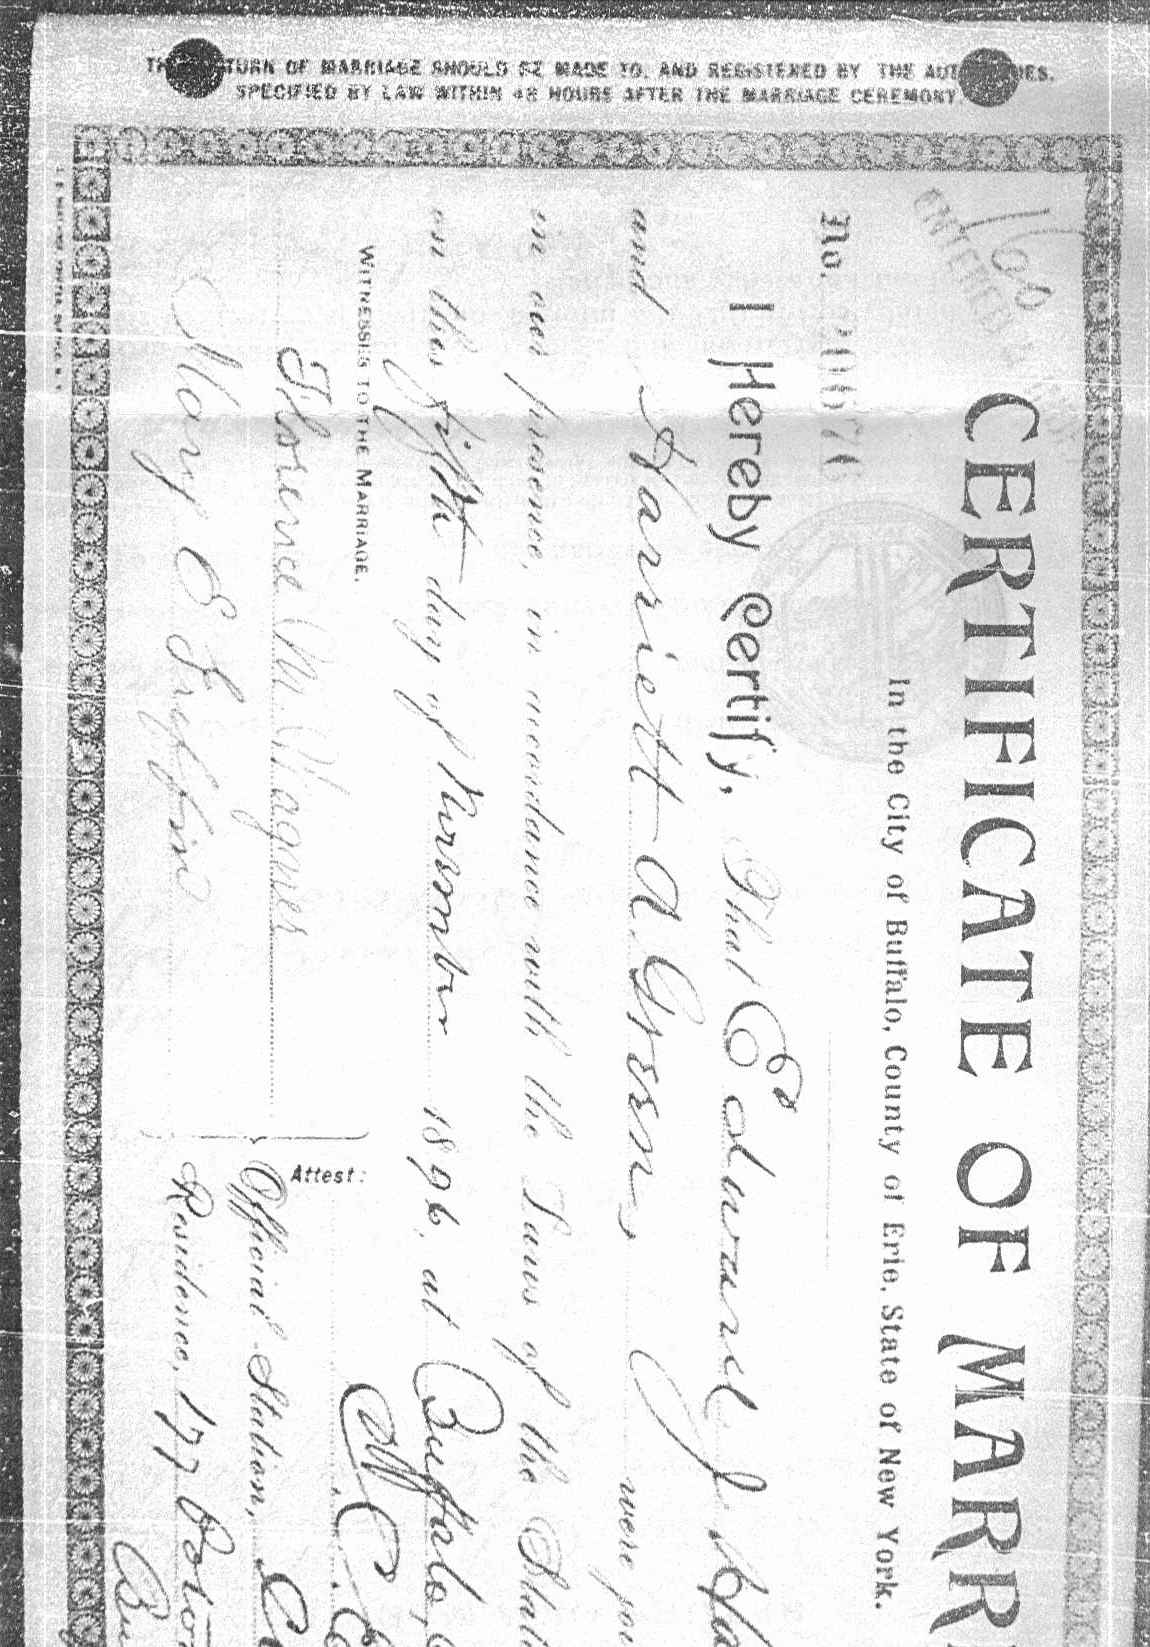 THE RETURN OF MARRIAGE SHOULD BE MADE TO, AND REGISTERED BY THE AUTHORITIES,
SPECIFIED BY LAW WITHIN 48 HOURS AFTER THE MARRIAGE CEREMONY.
CERTIFICATE OF MARR
In the City of Buffalo, County of Erie, State of New York.
ENTERED
No. 20676
I Hereby Certify, That Edward J. Ha
and Harriett A Green were joi
in our presence, in accordance with the Laws of the Stat
on this fifth day of November 1896, at Buffalo,
WITNESSES TO THE MARRIAGE.
Florence M. Wagner
Mary E
Attest:
Official Station,
Residence, 177